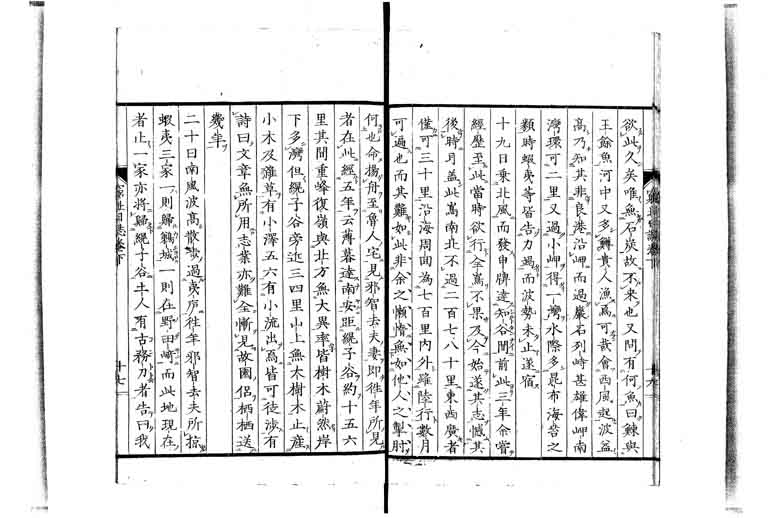 欲此久矣唯魚石炭故不来也又問有何魚曰鰊與
王餘魚河中又多鱒貴人漁爲可哉會西風起波益
高乃知其非良港沿岬而過巖石列峙甚雄偉岬南
灣環可二里又過小岬得一灣水際多昆布海苔之
類時蝦夷等皆告力竭而波勢未止遂宿
十九日乘北風而發申牌達知谷閇前此三年余嘗
經歷至此當時欲行全嶌不果及今始遂其志憾其
後時月蓋此嶌南北不過二百七八十里東西廣者
僅可三十里沿海周囬為七百里内外雖陸行數月
可遍也而其難如此非余之懶惰無如他人之掣肘
何也命揚舟至魯人宅見邪智去夫妻即徃年所見
者在此經五年云薄暮達南安距緄子谷約十五六
里其間重峰復嶺與北方無大異率皆樹木蔚然岸
下多灣但緄子谷旁近三四里山上無大樹木止産
小木及雜草有小澤五六有小流出焉皆可徒渉有
詩曰文章無所用志業亦難全慚見故園侶栖栖送
幾年
二十日南風波髙散歩過夷戸徃年邪智去夫所掠
蝦夷三家一則歸鵜城一則在野田崎而此地現在
者止一家亦將歸緄子谷土人有古務刀者告曰我
十七